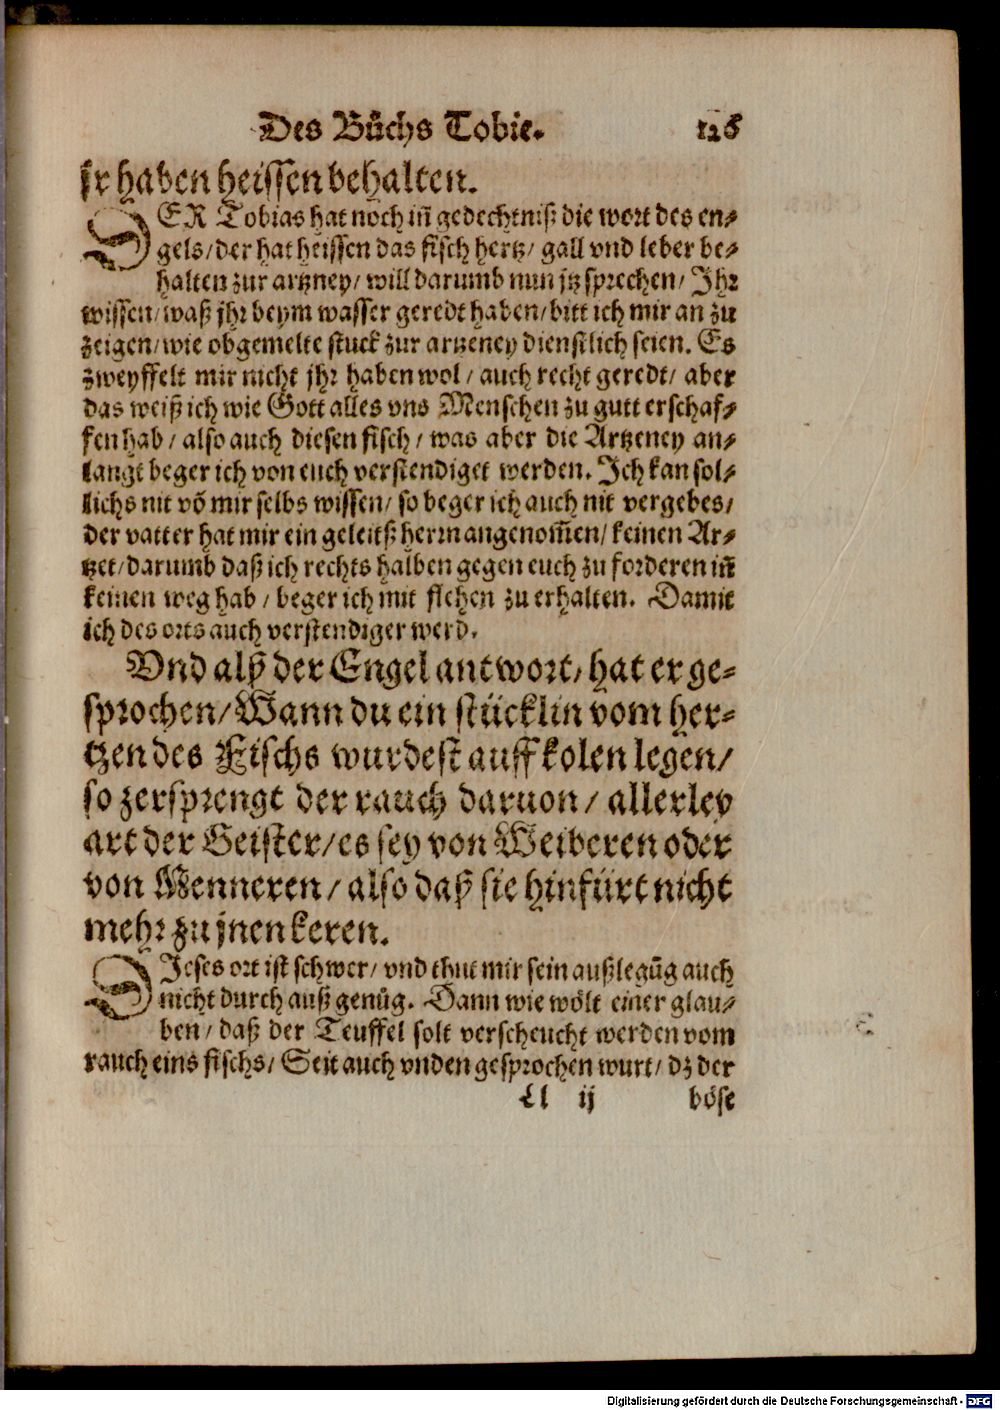 Des Bůchs Tobie. 126
jr haben heissen behalten.
DER Tobias hat noch iñ gedechtniß die wort des en⸗
gels/ der hat heissen das fisch hertz/ gall vnd leber be⸗
halten zur artzney/ will darumb nun jtz sprechen/ Ihr
wissen/ waß jhr beym wasser geredt haben/ bitt ich mir an zu
zeigen/ wie obgemelte stuck zur artzeney dienstlich seien. Es
zweyffelt mir nicht jhr haben wol/ auch recht geredt/ aber
das weiß ich wie Gott alles vns Menschen zu gutt erschaf⸗
fen hab/ also auch diesen fisch/ was aber die Artzeney an⸗
langt beger ich von euch verstendiget werden. Ich kan sol⸗
lichs nit võ mir selbs wissen/ so beger ich auch nit vergebes/
der vatter hat mir ein geleitß herrn angenom̃en/ keinen Ar⸗
tzet/ darumb daß ich rechts halben gegen euch zu forderen iñ
keinen weg hab/ beger ich mit flehen zu erhalten. Damit
ich des orts auch verstendiger werd.
Vnd alß der Engel antwort/ hat er ge⸗
sprochen/ Wann du ein stücklin vom her⸗
tzen des Fischs wurdest auff kolen legen/
so zersprengt der rauch daruon/ allerley
art der Geister/ es sey von Weiberen oder
von Menneren/ also daß sie hinfürt nicht
mehr zu jnen keren.
DIeses ort ist schwer/ vnd thut mir sein außlegũg auch
nicht durch auß genůg. Dann wie wölt einer glau⸗
ben/ daß der Teuffel solt verscheucht werden vom
rauch eins fischs/ Seit auch vnden gesprochen wurt/ dz der
Ll ij böse
Digitalisierung gefördert durch die Deutsche Forschungsgemeinschaft - DFG